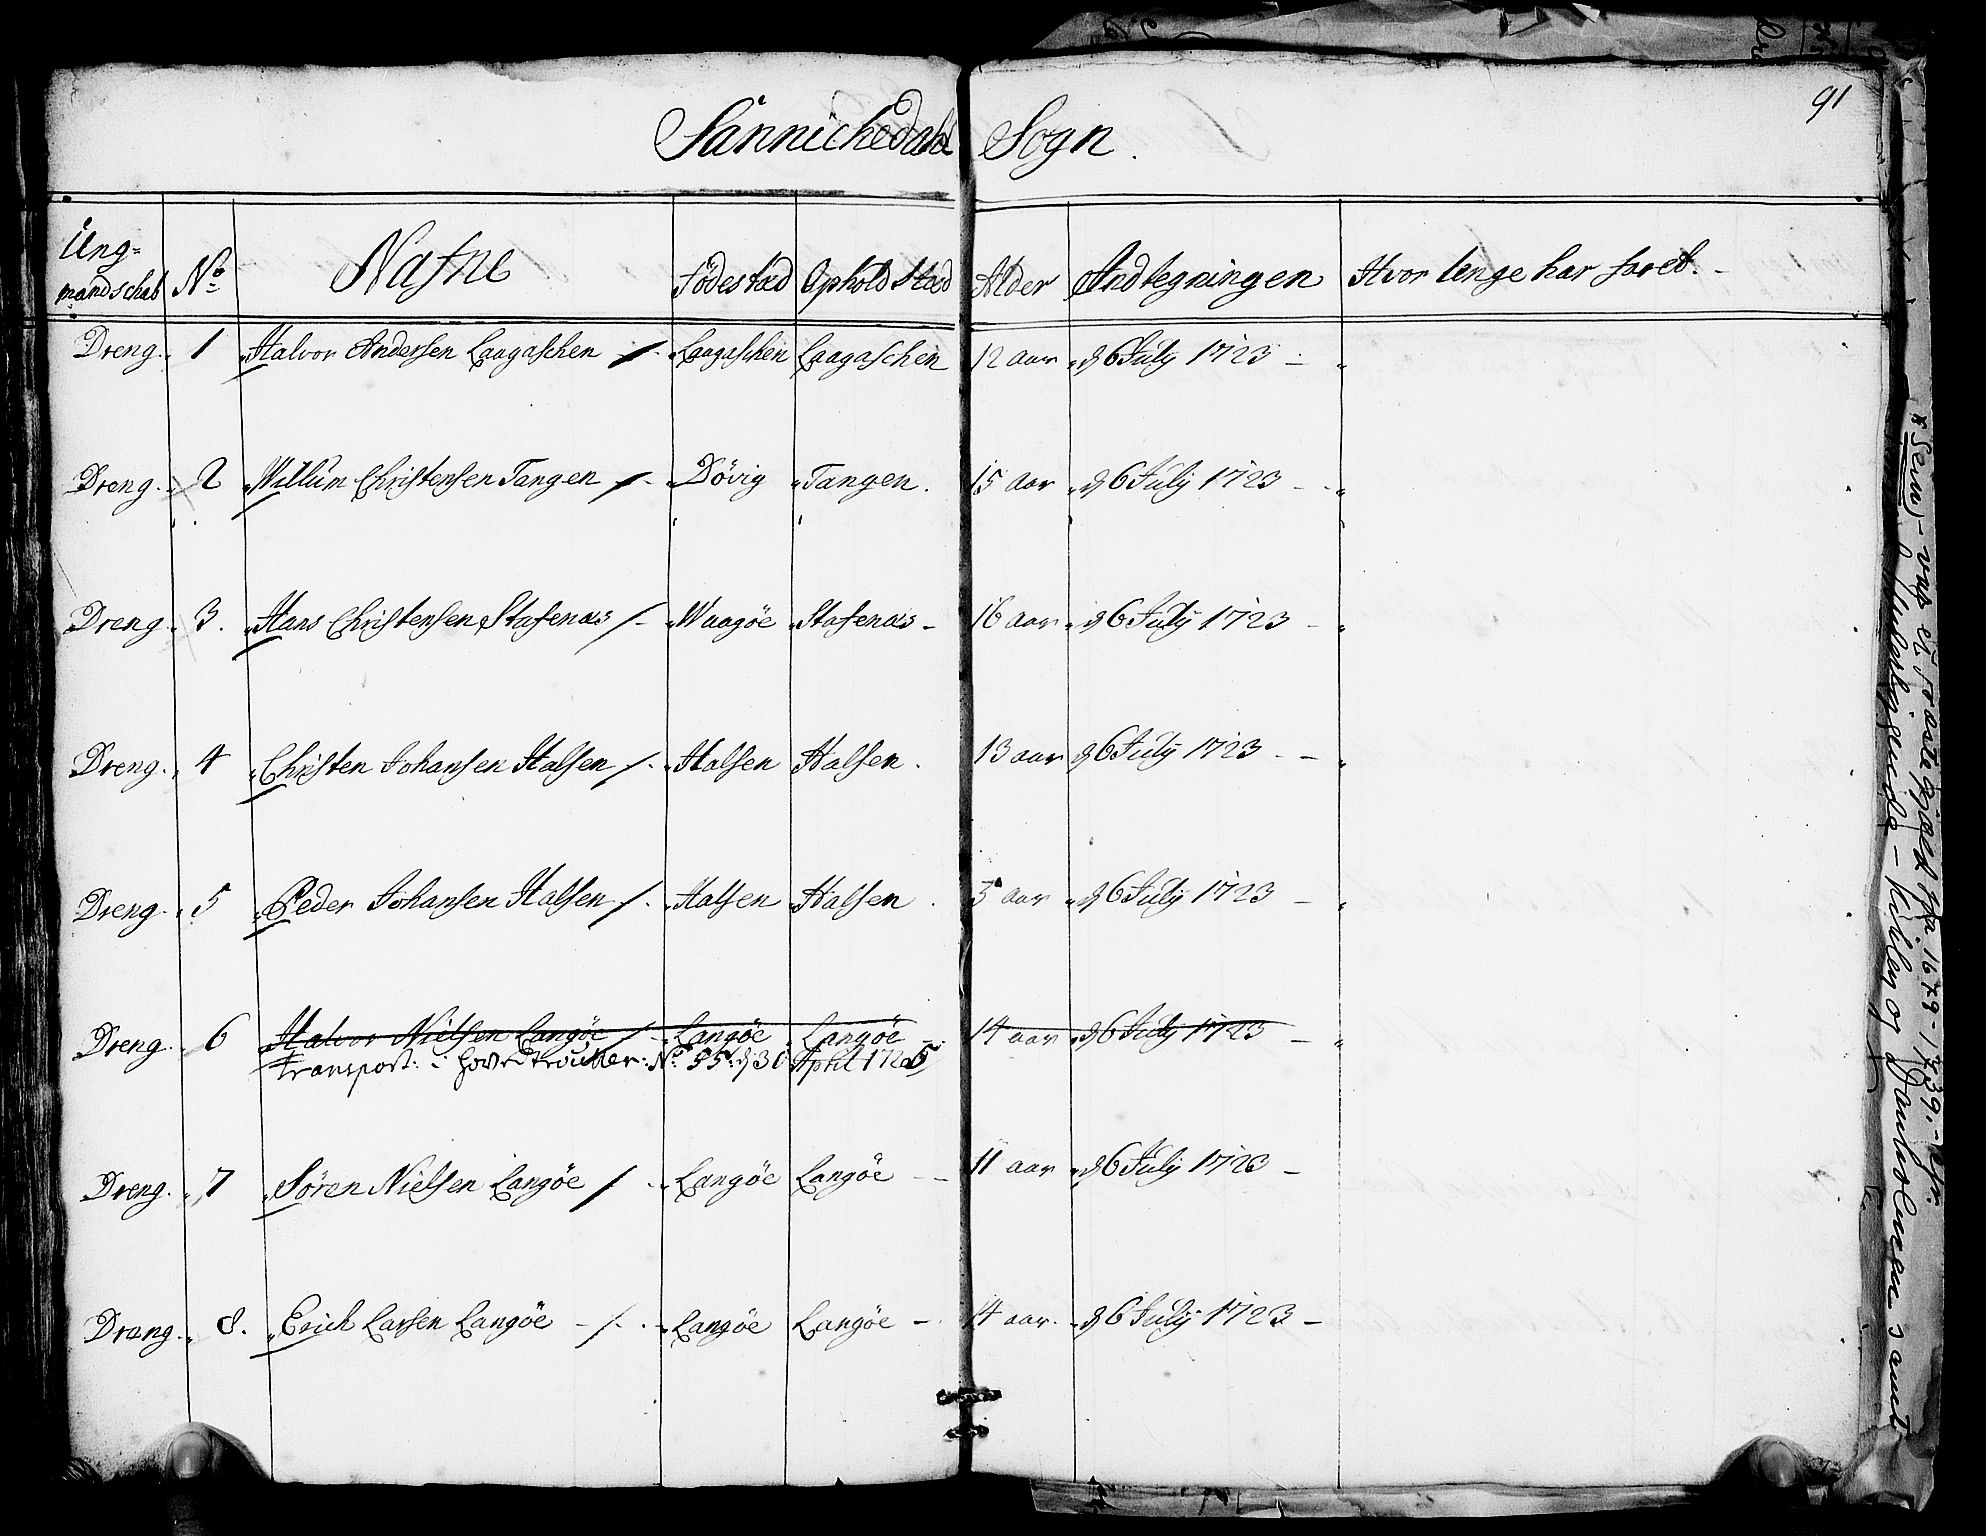 91
Sannichedahl Sogn.
Ung=
mandschab No Nafne Födestad Ophold Stæd Alder Andtegningen Hvor lenge har faret. -
Dreng. 1 Halvor Andersen Laagaschen /. Laagaschen Laagaschen 12 aar d 6 July 1723 -
Dreng. 2 Willum Christensen Tangen /- Dövig Tangen. 15 aar d 6 July 1723 -
Dreng. 3. Hans Christensen Stafenæs /- Waagöe Stafenæs - 16 aar d 6 July 1723 -
Dreng. 4 Christen Johansen Halsen /. Halsen Halsen. 13 aar d 6 July 1723 - -
Dreng. 5 Peder Johansen Halsen /. Halsen Halsen. 5 aar d 6 July 1723 -
Dreng. 6 Halvor Nielsen Langöe /- Langöe Langöe - 14 aar d 6 July 1723 -
transport: i hoved roullen: No 55: d 30 April 1725
Dreng. 7 Sören Nielsen Langöe / - Langöe Langöe - 11 aar d 6 July 1723 -
Dreng. 8. Erich Larsen Langöe - /- Langöe Langöe - 14 aar. d 6 July 1723 -
x Sem, - var et Præstegjæld fra 1673 - 1739. -
- og Jarlsbergens amt